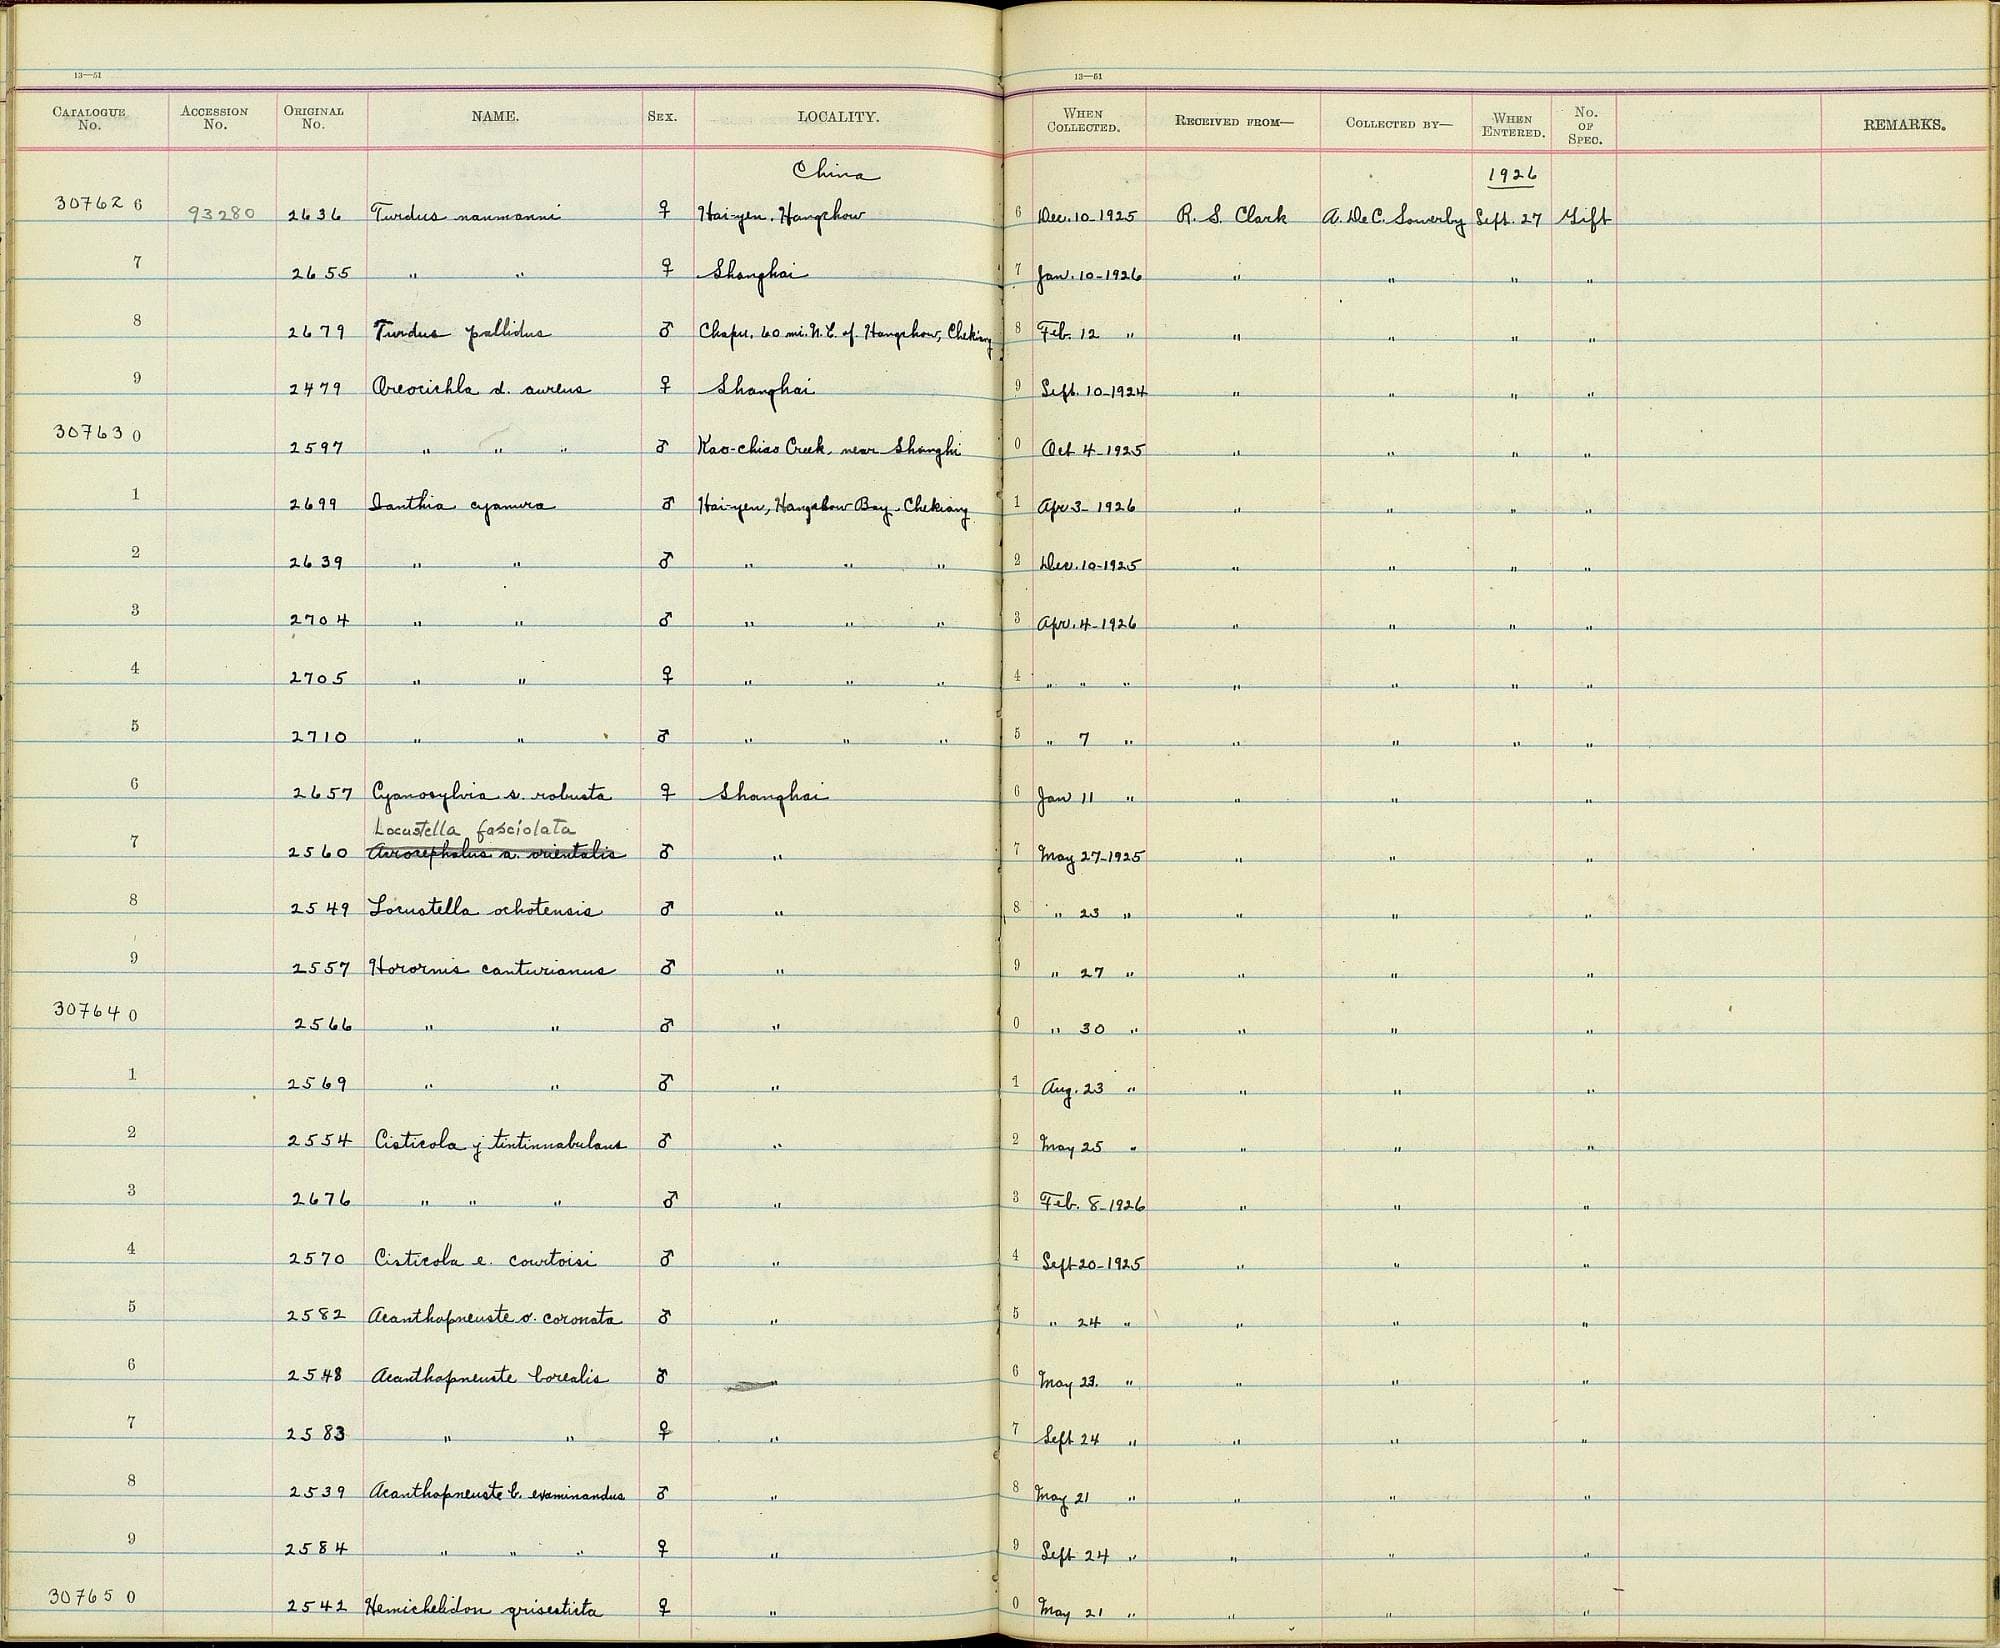 13—51 13—51
CATALOGUE No. ACCESSION No. ORIGINAL No. NAME. SEX. LOCALITY. WHEN COLLECTED. RECEIVED FROM— COLLECTED BY— WHEN ENTERED. No. OF SPEC. REMARKS.
China 1926
307626 93280 2636 Turdus naumanni ♀ Hai-yen, Hangchow 6 Dec. 10-1925 R. S. Clark A. DeC. Sowerby Sept. 27 Gift
7 2655 " " ♀ Shanghai 7 Jan. 10-1926 " " " "
8 2679 Turdus pallidus ♂ Chapu, 60 mi. N.E. of Hangchow, Chekiang 8 Feb. 12 " " " " "
9 2479 Oreocichla d. aureus ♀ Shanghai 9 Sept. 10-1924 " " " "
307630 2597 " " " ♂ Kao-chiao Creek, near Shanghi 0 Oct 4-1925 " " " "
1 2699 Ianthia cyanura ♂ Hai-yen, Hangchow Bay, Chekiang 1 Apr 3-1926 " " " "
2 2639 " " ♂ " " " 2 Dec. 10-1925 " " " "
3 2704 " " ♂ " " " 3 Apr. 4-1926 " " " "
4 2705 " " ♀ " " " 4 " " " " " " "
5 2710 " " ♂ " " " 5 " 7 " " " " "
6 2657 Cyanosylvia s. robusta ♀ Shanghai 6 Jan 11 " " " "
Locustella fasciolata
7 2560 Acrocephalus a. orientalis ♂ " 7 May 27-1925 " " "
8 2549 Locustella ochotensis ♂ " 8 " 23 " " " "
9 2557 Horornis canturianus ♂ " 9 " 27 " " " "
307640 2566 " " ♂ " 0 " 30 " " " "
1 2569 " " ♂ " 1 Aug. 23 " " " "
2 2554 Cisticola j tintinnabulans ♂ " 2 May 25 " " " "
3 2676 " " " ♂ " 3 Feb. 8-1926 " " "
4 2570 Cisticola e. courtoisi ♂ " 4 Sept 20-1925 " " "
5 2582 Acanthopneuste o. coronata ♂ " 5 " 24 " " " "
6 2548 Acanthopneuste borealis ♂ " 6 May 23. " " " "
7 2583 " " ♀ " 7 Sept 24 " " " "
8 2539 Acanthopneuste b. examinandus ♂ " 8 May 21 " " " "
9 2584 " " " ♀ " 9 Sept 24 " " " "
307650 2542 Hemichelidon grisesticta ♀ " 0 May 21 " " " "